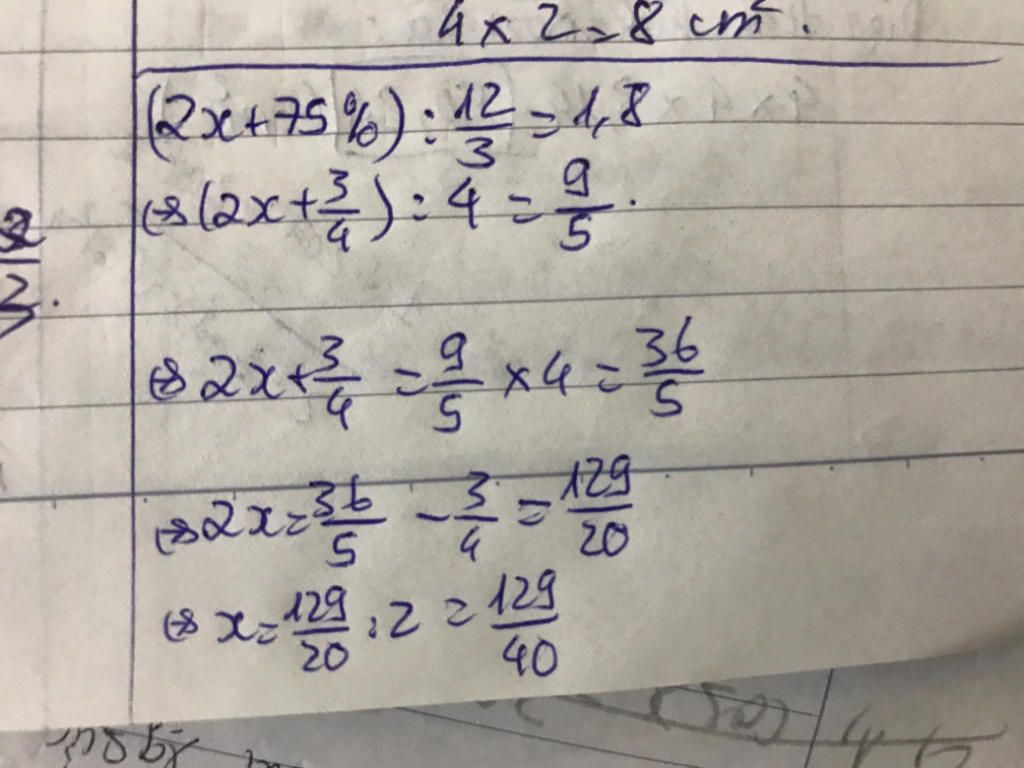 4 x 2 = 8 cm².
(2x + 75%) : 12/3 = 1,8
⇔ (2x + 3/4) : 4 = 9/5.
2.
⇔ 2x + 3/4 = 9/5 x 4 = 36/5
⇔ 2x = 36/5 - 3/4 = 129/20
⇔ x = 129/20 : 2 = 129/40